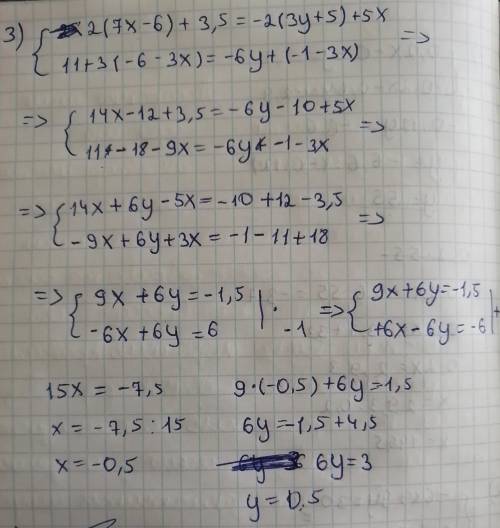 3) { 2(7x-6)+3,5=-2(3y+5)+5x
11+3(-6-3x)=-6y+(-1-3x) =>
=> { 14x-12+3,5=-6y-10+5x
11-18-9x=-6y-1-3x =>
=> { 14x+6y-5x=-10+12-3,5
-9x+6y+3x=-1-11+18 =>
=> { 9x+6y=-1,5 | · => { 9x+6y=-1,5 | +
-6x+6y=6 | -1 +6x-6y=-6
15x=-7,5 9·(-0,5)+6y=1,5
x=-7,5:15 6y=-1,5+4,5
x=-0,5 6y=3
y=0,5